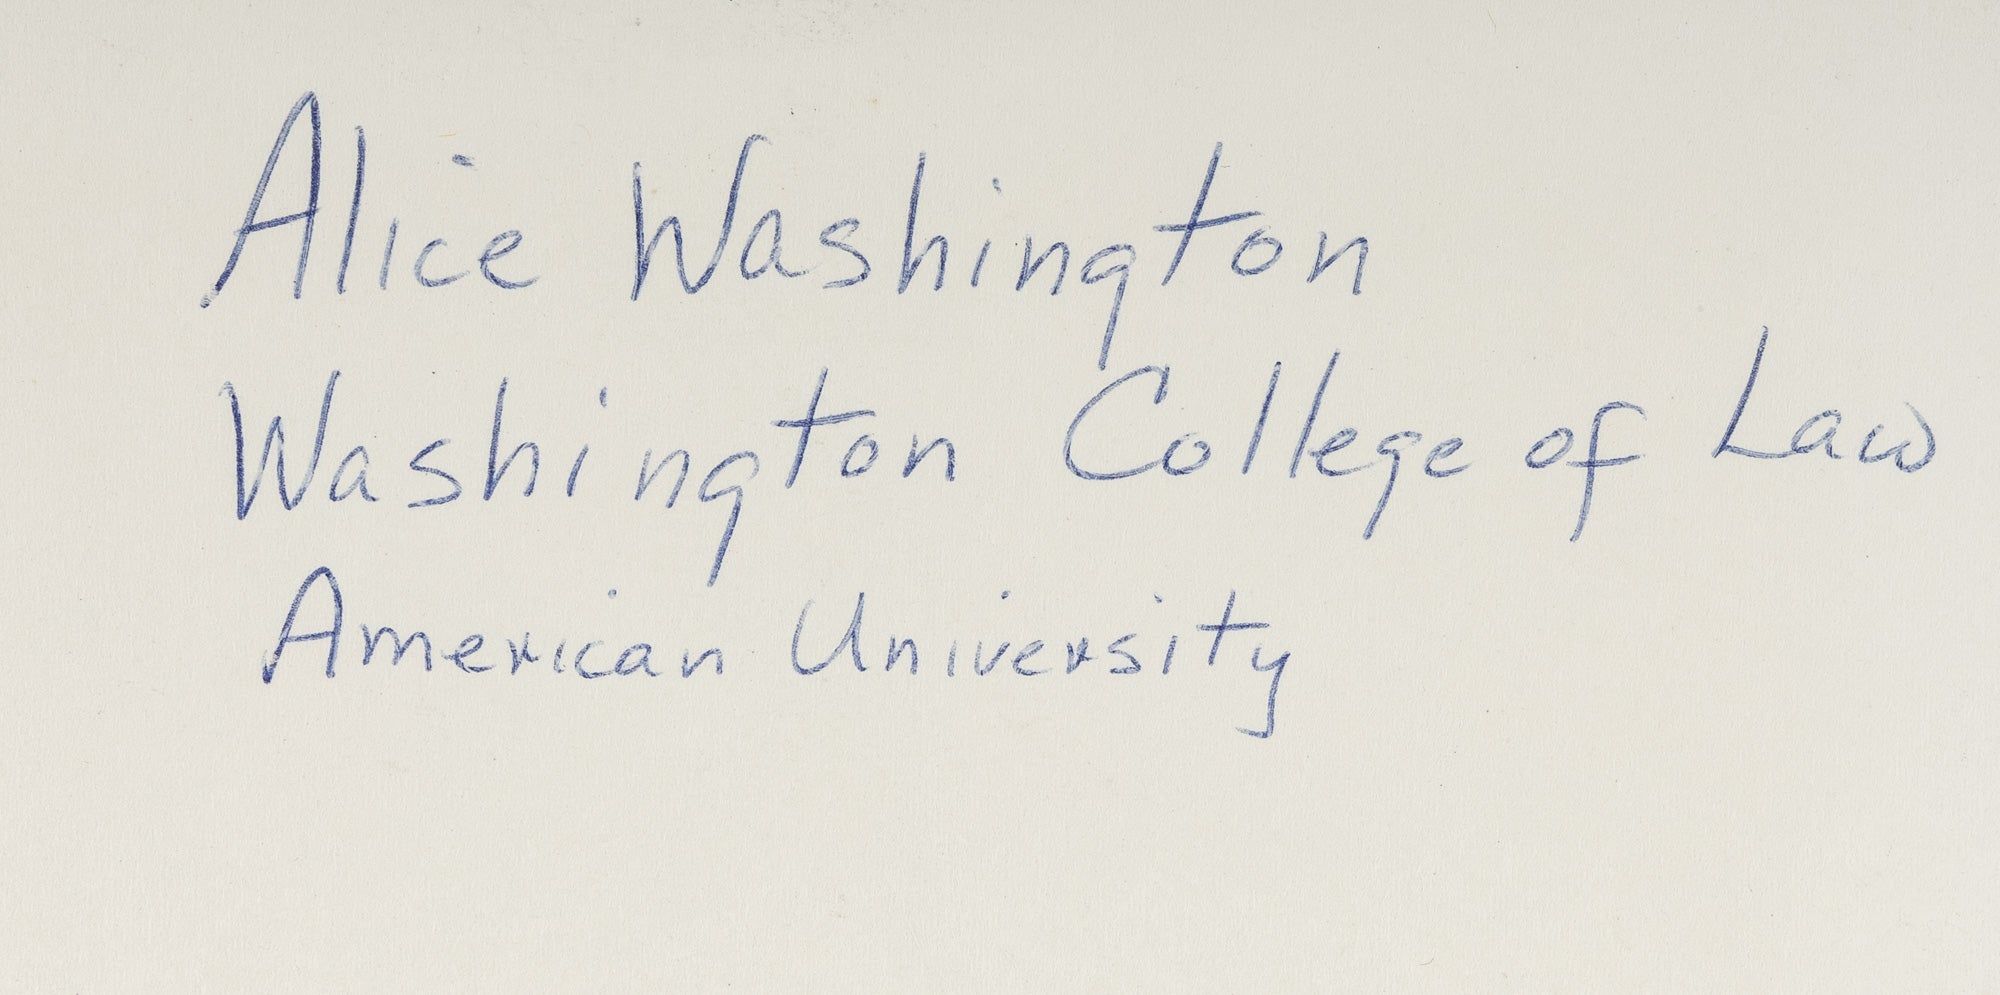 Alice Washington
Washington College of Law
American University